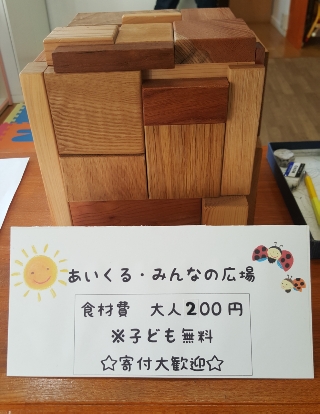 あいくる・みんなの広場
食材費　大人200円
※子ども無料
☆寄付大歓迎☆